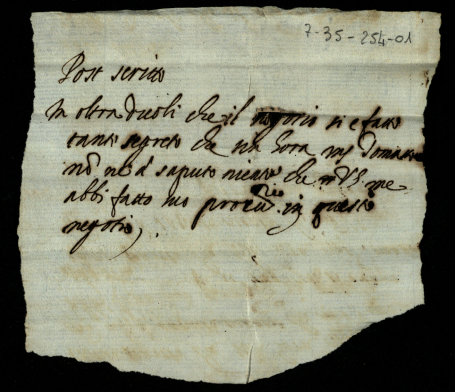 7-35-254-01
Post scritto
In oltra dicoli che il negorio si e fatto
tanto segreto che sin hora
nō ne à saputo niente che me
abbi fatto suo in questo
negotio,